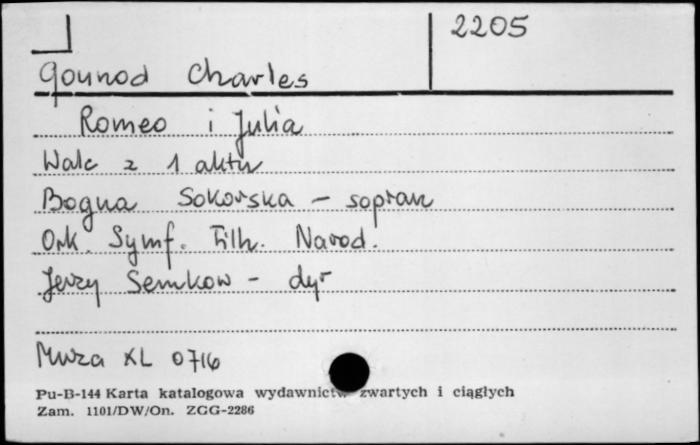 2205
Gounod Charles
Romeo i Julia
Walc z 1 aktu
Bogna Sokorska - sopran
Ork. Symf. Filh. Narod.
Jerzy Semkow - dyr
Muza XL 0716
Pu-B-144 Karta katalogowa wydawnictw zwartych i ciągłych
Zam. 1101/DW/On. ZGG-2286